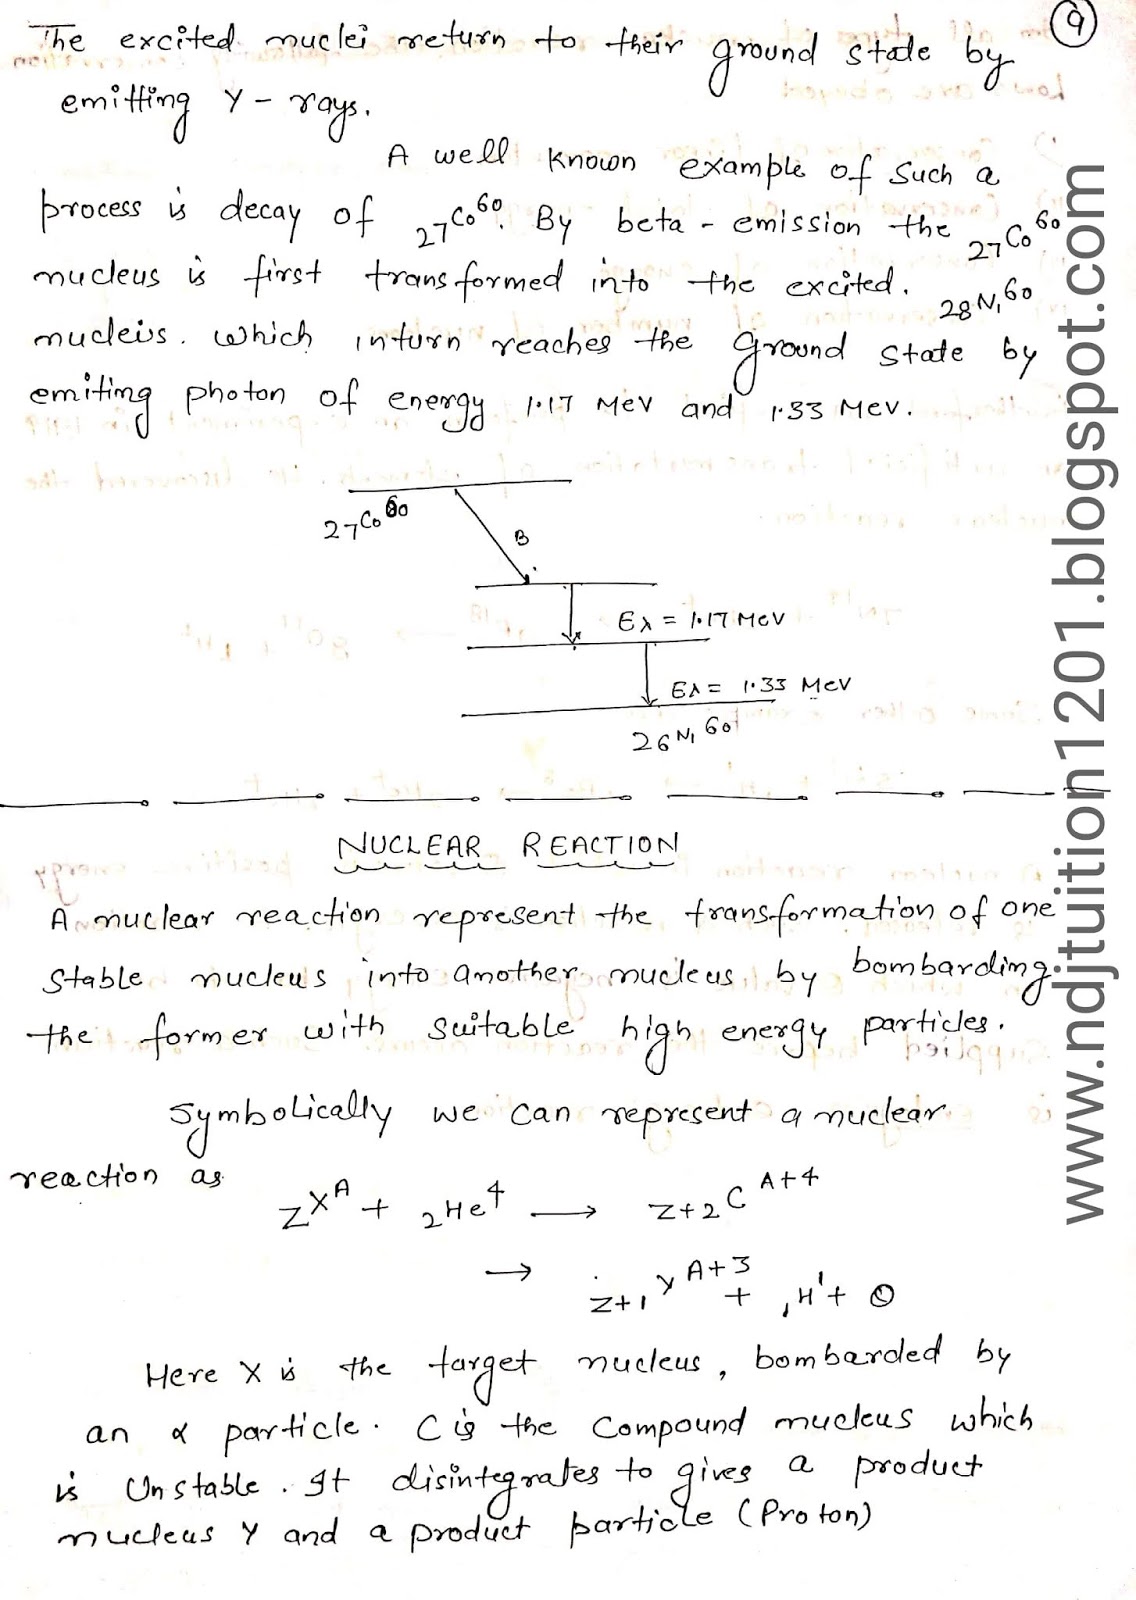 9
The excited nuclei return to their ground state by
emitting γ - rays.
A well known example of such a
process is decay of 27Co60. By beta - emission the 27Co60
nucleus is first transformed into the excited. 28Ni60
nucleus. which inturn reaches the ground state by
emiting photon of energy 1.17 MeV and 1.33 MeV.
27Co60
B
Eλ = 1.17 MeV
Eλ = 1.33 MeV
26Ni60
NUCLEAR REACTION
A nuclear reaction represent the transformation of one
stable nucleus into another nucleus by bombarding
the former with suitable high energy particles.
Symbolically we can represent a nuclear
reaction as
ZXA + 2He4 → Z+2CA+4
→ Z+1YA+3 + 1H1 + Q
Here X is the target nucleus, bombarded by
an α particle. C is the compound nucleus which
is Unstable. It disintegrates to gives a product
nucleus Y and a product particle (Proton)
www.ndjtuition1201.blogspot.com